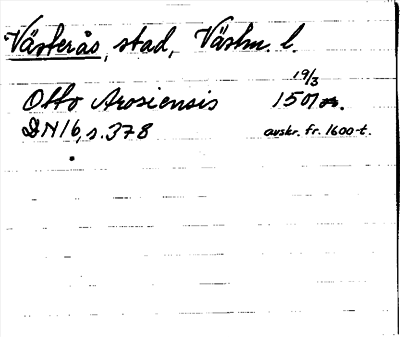 Västerås, stad, Västm. l.
19/3
Otto Arosiensis 1507 or.
DN 16, s. 378 avskr. fr. 1600-t.